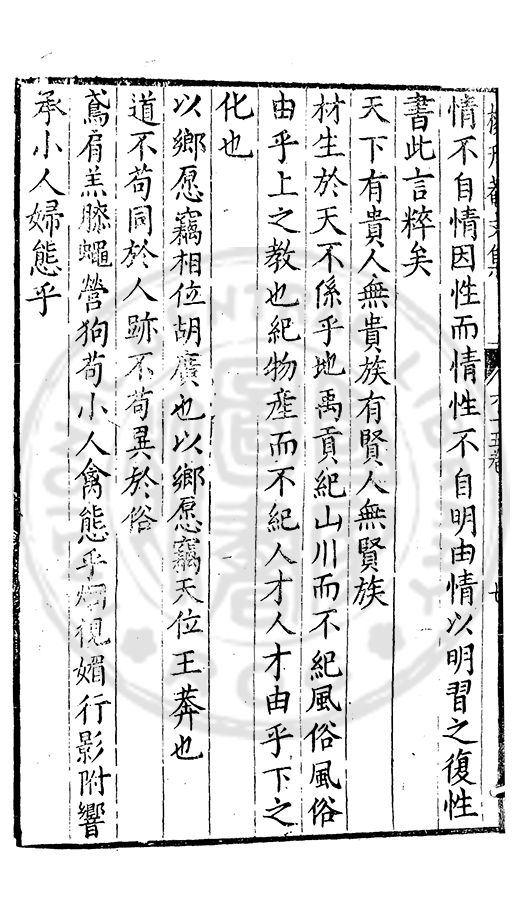 情不自情因性而情性不自明由情以明習之復性
書此言粹矣
天下有貴人無貴族有賢人無賢族
材生於天不係乎地禹貢紀山川而不紀風俗風俗
由乎上之教也紀物產而不紀人才人才由乎下之
化也
以鄉愿竊相位胡廣也以鄉愿竊天位王莽也
道不苟同於人跡不苟異於俗
鳶肩羔膝蠅營狗苟小人禽態乎烟視媚行影附響
承小人婦態乎